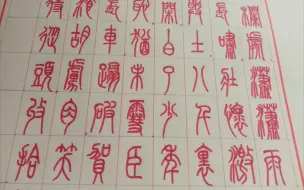 欄處瀟瀟雨
長嘯壯懷激
與土八千裏
閒白了少年
恥猶未雪臣
長車踏破賀
餐胡虜肉笑
待從頭收拾